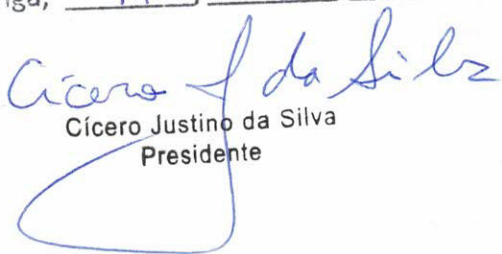 Cícero J da Silva
Cícero Justino da Silva
Presidente